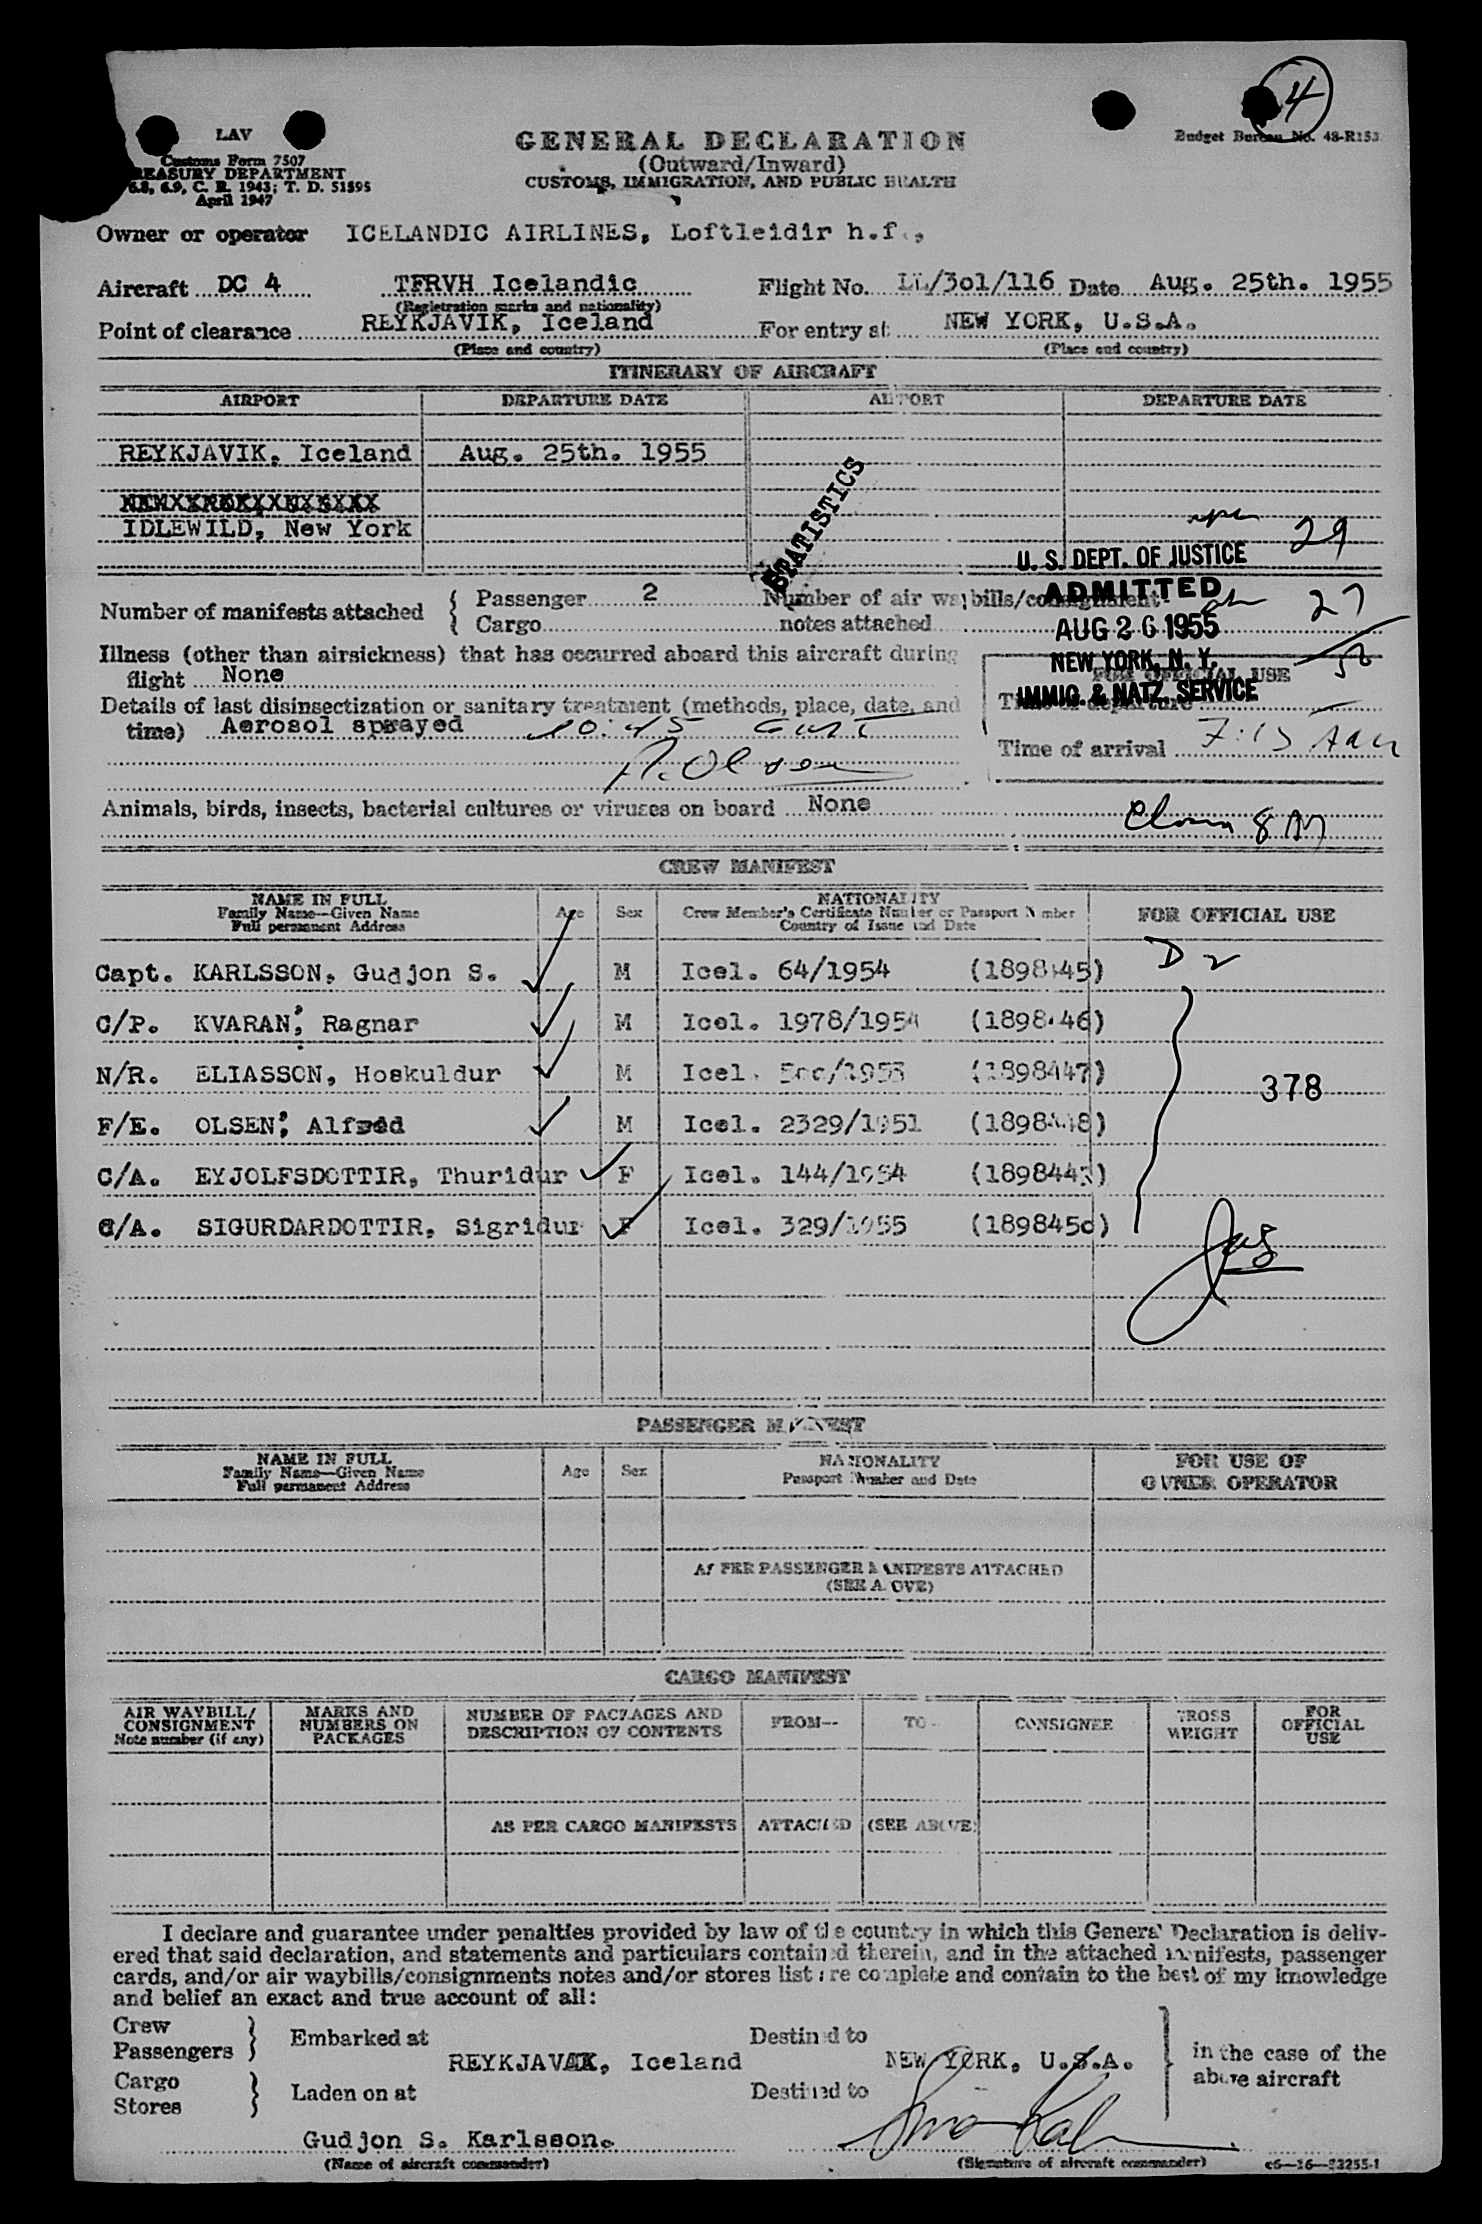 4
LAV
GENERAL DECLARATION
Budget Bureau No. 48-R153
Customs Form 7507
(Outward/Inward)
TREASURY DEPARTMENT
CUSTOMS, IMMIGRATION, AND PUBLIC HEALTH
6.8, 6.9, C. R. 1943; T. D. 51595
April 1947
Owner or operator ICELANDIC AIRLINES, Loftleidir h.f.,
Aircraft DC 4 TFRVH Icelandic Flight No. LL/3o1/116 Date Aug. 25th. 1955
(Registration marks and nationality)
Point of clearance REYKJAVIK, Iceland For entry at NEW YORK, U.S.A.
(Place and country) (Place and country)
ITINERARY OF AIRCRAFT
AIRPORT DEPARTURE DATE AIRPORT DEPARTURE DATE
REYKJAVIK, Iceland Aug. 25th. 1955
STATISTICS
IDLEWILD, New York
29
U. S. DEPT. OF JUSTICE
ADMITTED
Number of manifests attached { Passenger 2 Number of air waybills/consignment-
Cargo notes attached
27
AUG 26 1955
Illness (other than airsickness) that has occurred aboard this aircraft during
flight None
NEW YORK, N. Y.
FOR OFFICIAL USE
IMMIG. & NATZ. SERVICE
Details of last disinsectization or sanitary treatment (methods, place, date, and
time) Aerosol sprayed 10:45 GMT
Time of departure
Time of arrival 7:15
A. Olsen
Animals, birds, insects, bacterial cultures or viruses on board None
CREW MANIFEST
NAME IN FULL
Family Name—Given Name
Full permanent Address
Age Sex
NATIONALITY
Crew Member's Certificate Number or Passport Number
Country of Issue and Date
FOR OFFICIAL USE
Capt. KARLSSON, Gudjon S. M Icel. 64/1954 (1898445) D2
C/P. KVARAN, Ragnar M Icel. 1978/1954 (1898446)
N/R. ELIASSON, Hoskuldur M Icel. (1898447) 378
F/E. OLSEN, Alfred M Icel. 2329/1951 (1898448)
C/A. EYJOLFSDOTTIR, Thuridur F Icel. 144/1954
C/A. SIGURDARDOTTIR, Sigridur F Icel. 329/1955 (189845o)
PASSENGER MANIFEST
NAME IN FULL
Family Name—Given Name
Full permanent Address
Age Sex
NATIONALITY
Passport Number and Date
FOR USE OF
OWNER OPERATOR
AS PER PASSENGER MANIFESTS ATTACHED
(SEE ABOVE)
CARGO MANIFEST
AIR WAYBILL/
CONSIGNMENT
Note number (if any)
MARKS AND
NUMBERS ON
PACKAGES
NUMBER OF PACKAGES AND
DESCRIPTION OF CONTENTS
FROM-- TO-- CONSIGNEE
GROSS
WEIGHT
FOR
OFFICIAL
USE
AS PER CARGO MANIFESTS ATTACHED (SEE ABOVE)
I declare and guarantee under penalties provided by law of the country in which this General Declaration is deliv-
ered that said declaration, and statements and particulars contained therein, and in the attached manifests, passenger
cards, and/or air waybills/consignments notes and/or stores list are complete and contain to the best of my knowledge
and belief an exact and true account of all:
Crew
Passengers } Embarked at Destined to
REYKJAVIK, Iceland NEW YORK, U.S.A. } in the case of the
above aircraft
Cargo
Stores } Laden on at Destined to
Gudjon S. Karlsson.
(Name of aircraft commander) (Signature of aircraft commander) c6—16—53255-1